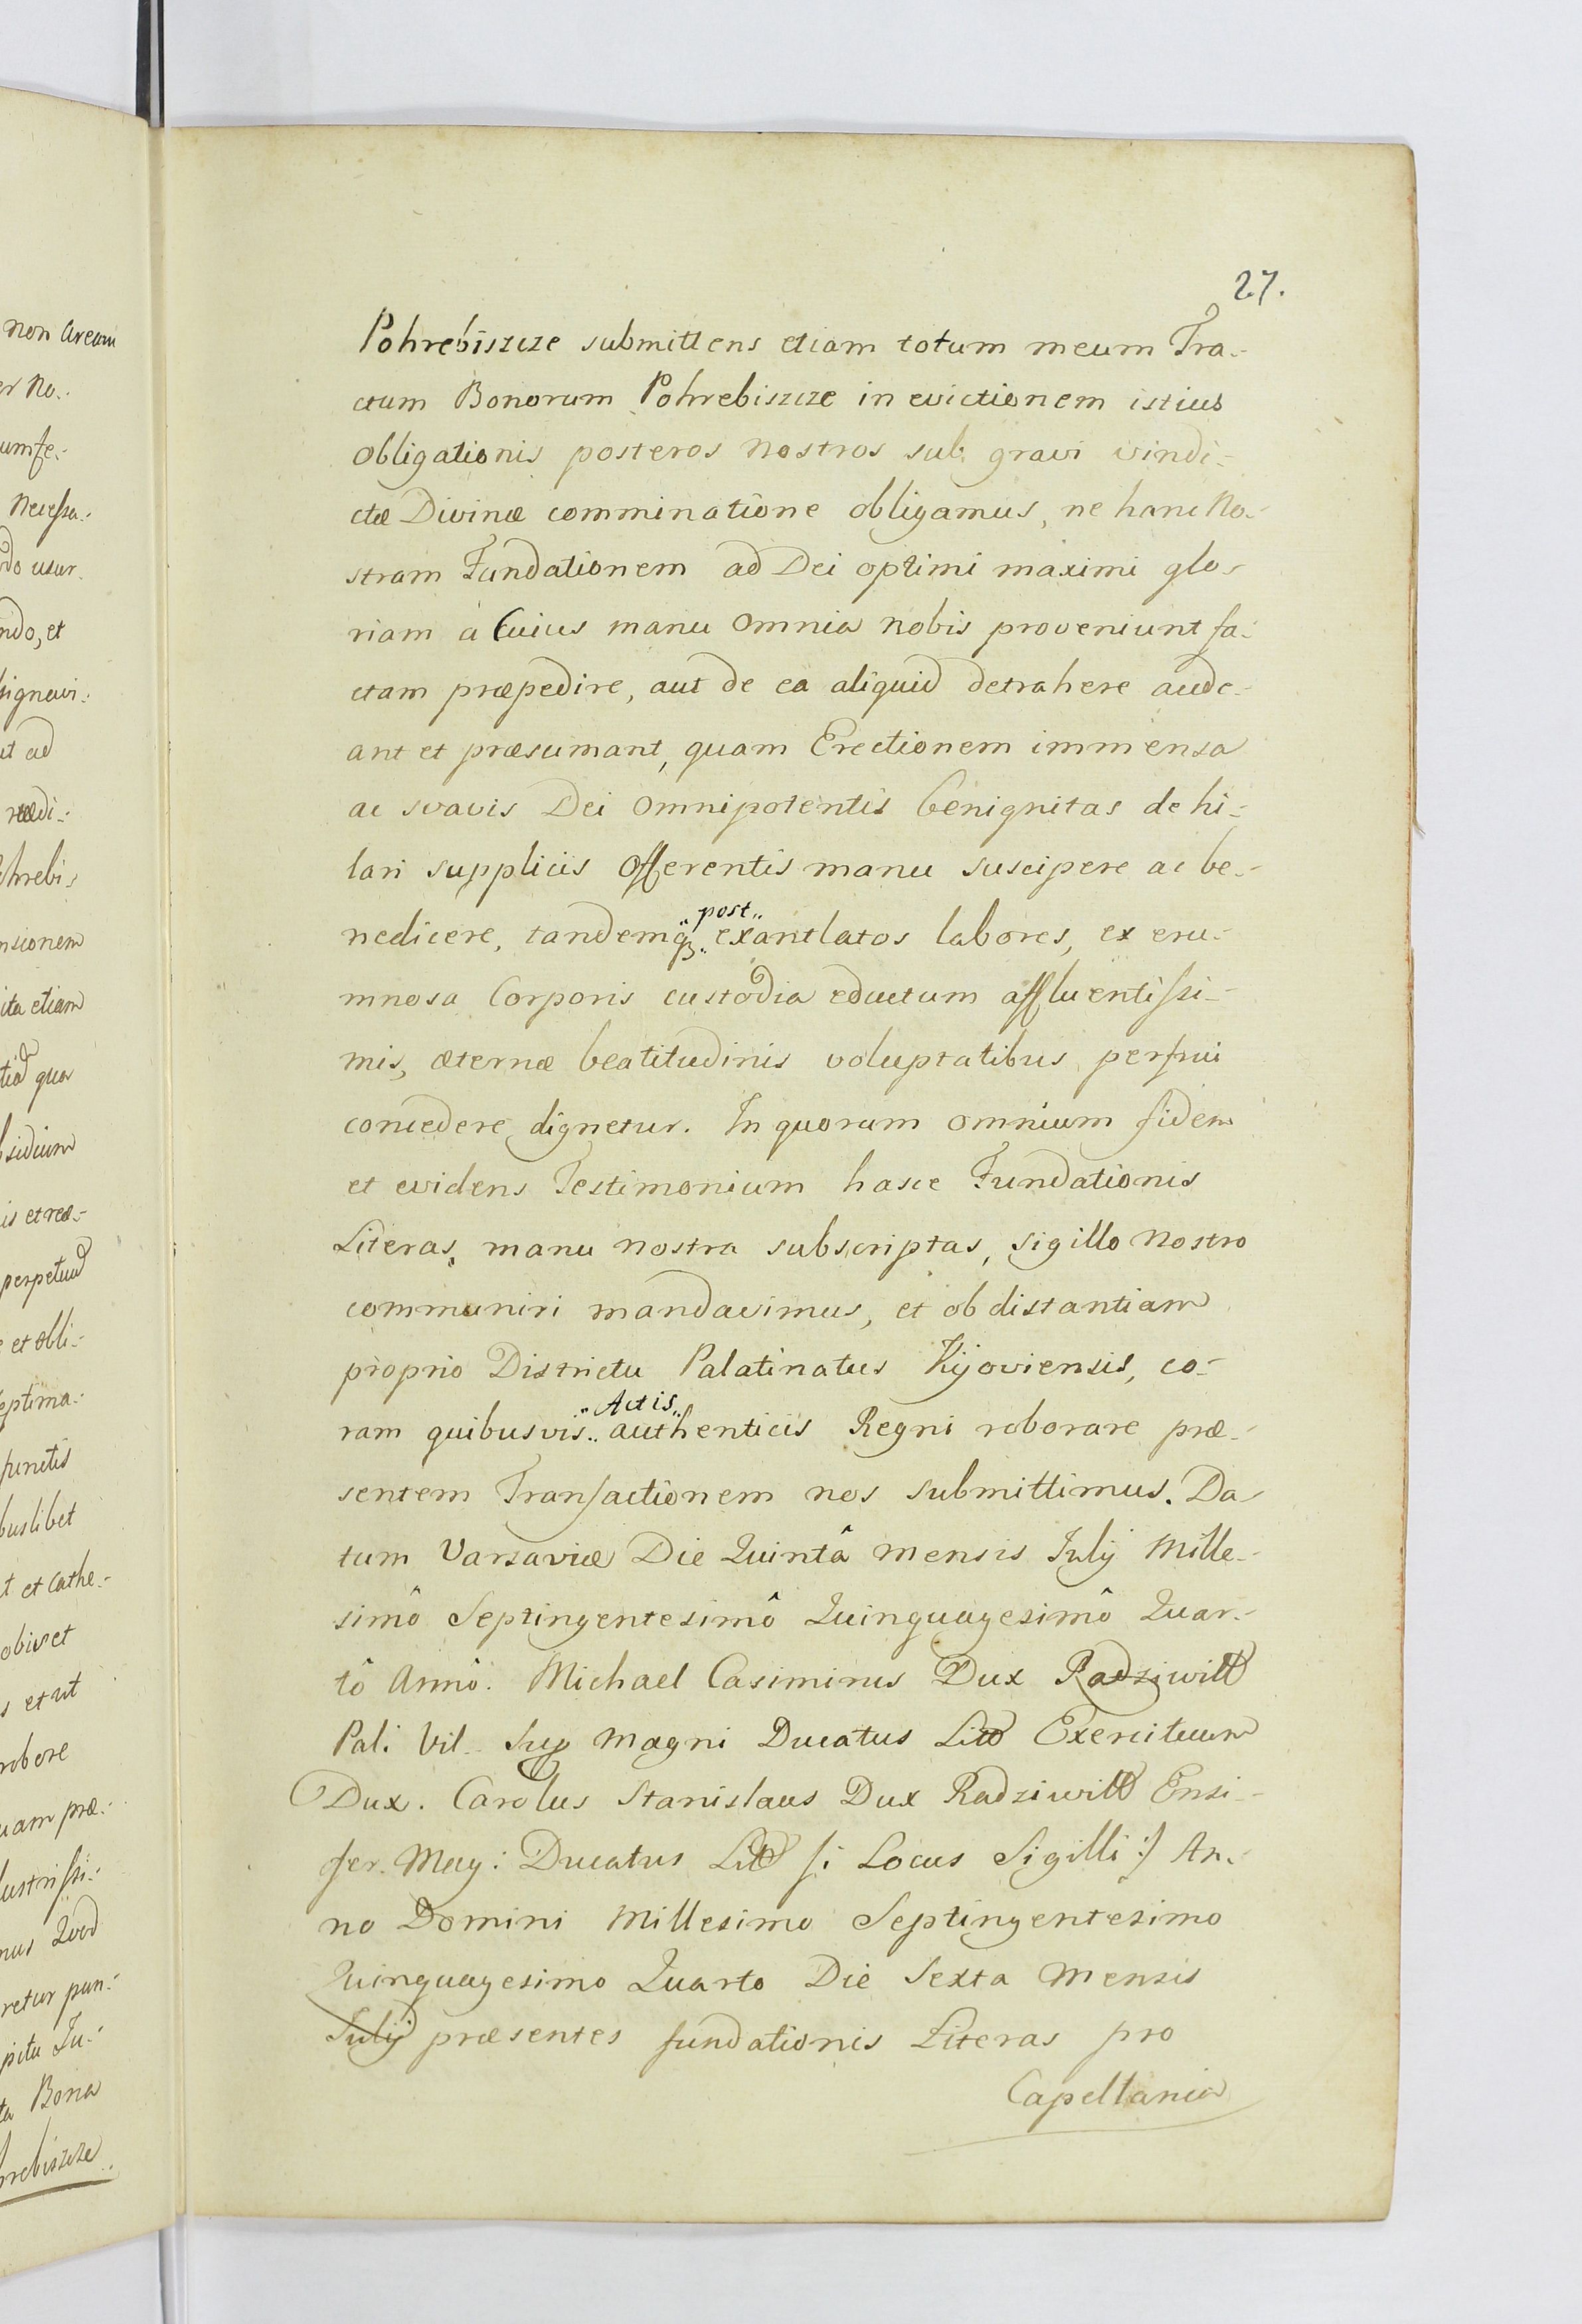 non Aream
er No..
umfe.-
Necessa.-
do usur.
ndo, et
signavi.-
ut ad
rædi.-
ohrebis
nsionem
ita etiam
tia qua
sidium
is et rea.-
perpetuo
et obli.-
septima.-
functis
buslibet
t et Cathe.-
obis et
s et ut
robore
uam præ.-
lustrissi.-
mus Quod
retur pun.-
pitu Ju.-
ta Bona
hrebiszcze
27.
Pohrebiszcze submittens etiam totum meum Tra.-
ctum Bonorum Pohrebiszcze in evictionem istius
obligationis posteros Nostros sub gravi vindi.-
ctæ Divinæ comminatione obligamus, ne hanc No.-
stram Fundationem ad Dei optimi maximi glo-
riam a Cuius manu omnia nobis proveniunt fa.-
ctam præpedire, aut de ea aliquid detrahere aude.-
ant et præsumant, quam Erectionem immensa
ac svavis Dei Omnipotentis benignitas de hi.-
lari supplicis Offerentis manu suscipere ac be.-
nedicere, tandemq3 "post" exantlatos labores, ex eru.-
mnosa Corporis custodia eductum affluentissi.-
mis, æternæ beatitudinis voluptatibus perfrui
concedere dignetur. In quorum omnium fidem
et evidens Testimonium hasce Fundationis
Literas, manu nostra subscriptas, sigillo Nostro
communiri mandavimus, et ob distantiam
proprio Districtu Palatinatus Kijoviensis, co-
ram quibusvis "Actis" authenticis Regni roborare præ.-
sentem Transactionem nos submittimus. Da
tum Varsaviæ Die Quintâ mensis Julij Mille.-
simô Septingentesimô Quinquagesimô Quar.-
tô Annô. Michael Casimirus Dux Radziwiłł
Pal: Vil. Sup Magni Ducatus Litt Exercituum
Dux. Carolus Stanislaus Dux Radziwiłł Ensi.-
fer. Mag: Ducatus Litt /: Locus Sigilli :/ An.-
no Domini Millesimo Septingentesimo
Quinquagesimo Quarto Die Sexta Mensis
Julij præsentes fundationis Literas pro
Capellania